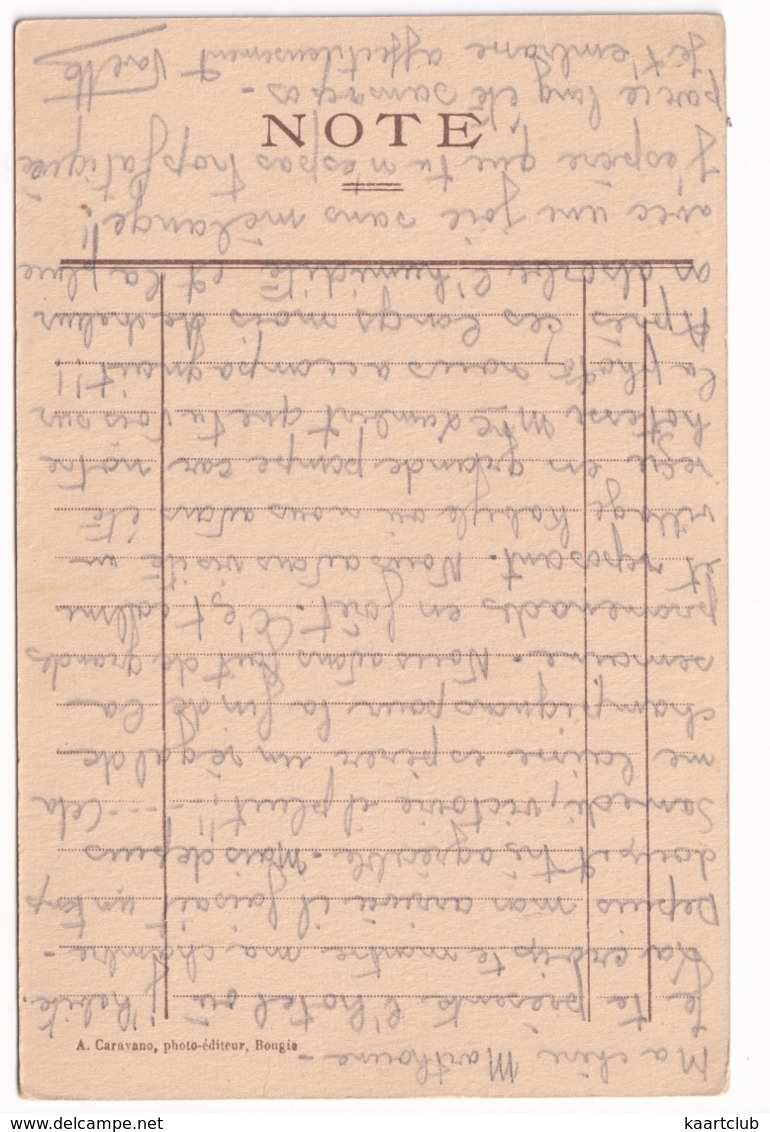 NOTE
A. Caravano, photo-éditeur, Bougie
Ma chère Marthoune -
Je te présente l'hôtel où j'habite.
La croix te montre ma chambre -
Depuis mon arrivée il faisait un temps
doux et très agréable - Mais depuis
Samedi, victoire il pleut!! --- Cela
me laisse espérer un régal de
champignons pour la fin de la
semaine. Nous avons fait de grandes
promenades en forêt. C'est calme
et reposant. Nous avons visité un
village Kabyle où nous avons été
reçu en grande pompe car notre
hôtesse Mme que tu vois sur
la photo, nous accompagnait!!
Après ces longs mois de chaleur
on absorbe l'humidité et la pluie
avec une joie sans mélange!!
J'espère que tu n'es pas trop fatiguée
par ce long été sans repos -
Je t'embrasse affectueusement
© website : kaartclub